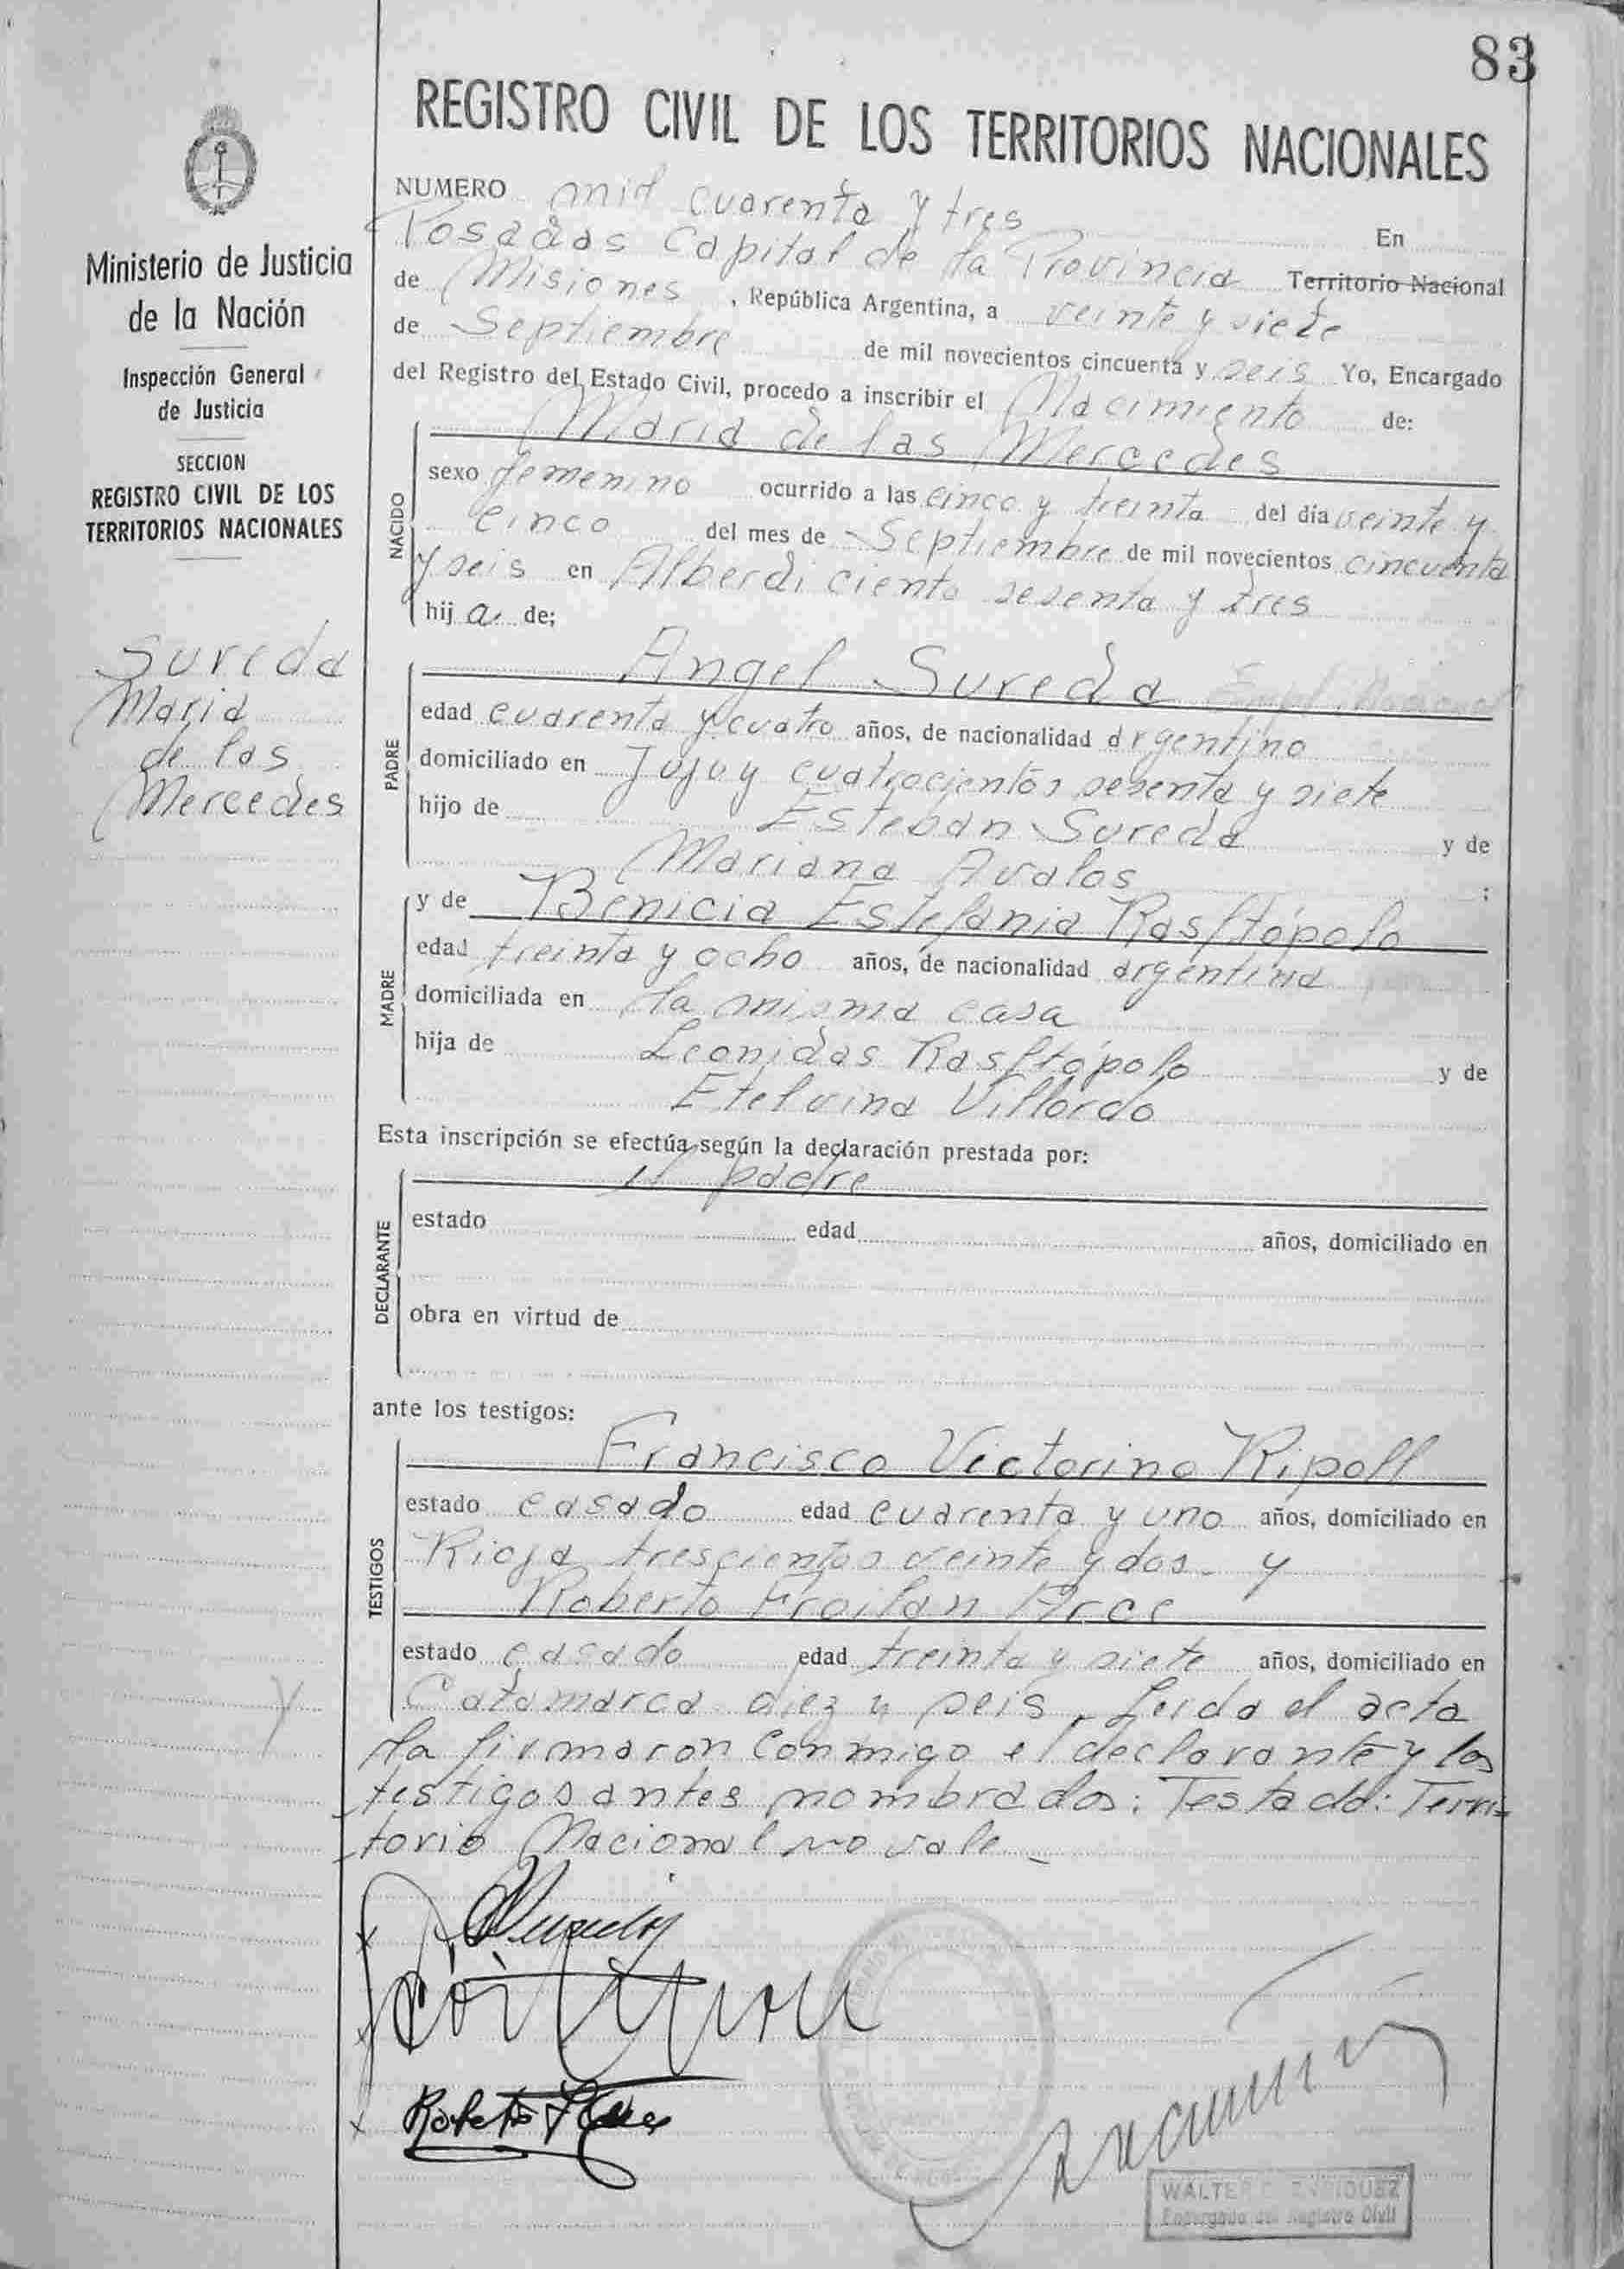 83
REGISTRO CIVIL DE LOS TERRITORIOS NACIONALES
Ministerio de Justicia
de la Nación
Inspección General
de Justicia
SECCION
REGISTRO CIVIL DE LOS
TERRITORIOS NACIONALES
Sureda
Maria
de las
Mercedes
NUMERO mil cuarenta y tres En
Posadas Capital de la Provincia Territorio Nacional
de Misiones, República Argentina, a veinte y siete
de Septiembre de mil novecientos cincuenta y seis Yo, Encargado
del Registro del Estado Civil, procedo a inscribir el Nacimiento de:
Maria de las Mercedes
NACIDO
sexo femenino ocurrido a las cinco y treinta del día veinte y
cinco del mes de Septiembre de mil novecientos cincuenta
y seis en Alberdi ciento sesenta y tres
hij a de;
Angel Sureda
PADRE
edad cuarenta y cuatro años, de nacionalidad argentino
domiciliado en Jujuy cuatrocientos sesenta y siete
hijo de Esteban Sureda y de
Mariana Avalos ;
y de Benicia Estefania Rasftópolo
MADRE
edad treinta y ocho años, de nacionalidad argentina
domiciliada en la misma casa
hija de Leonidas Rasftópolo y de
Etelvina Villordo
Esta inscripción se efectúa según la declaración prestada por:
el padre
DECLARANTE
estado edad años, domiciliado en
obra en virtud de
ante los testigos:
Francisco Victorino Ripoll
TESTIGOS
estado casado edad cuarenta y uno años, domiciliado en
Rioja trescientos veinte y dos - y
Roberto Froilan Arce
estado casado edad treinta y siete años, domiciliado en
Catamarca diez y seis. Leida el acta
la firmaron conmigo el declarante y los
testigos antes nombrados: Testado: Terri-
torio Nacional no vale -
WALTER
Encargado del Registro Civil